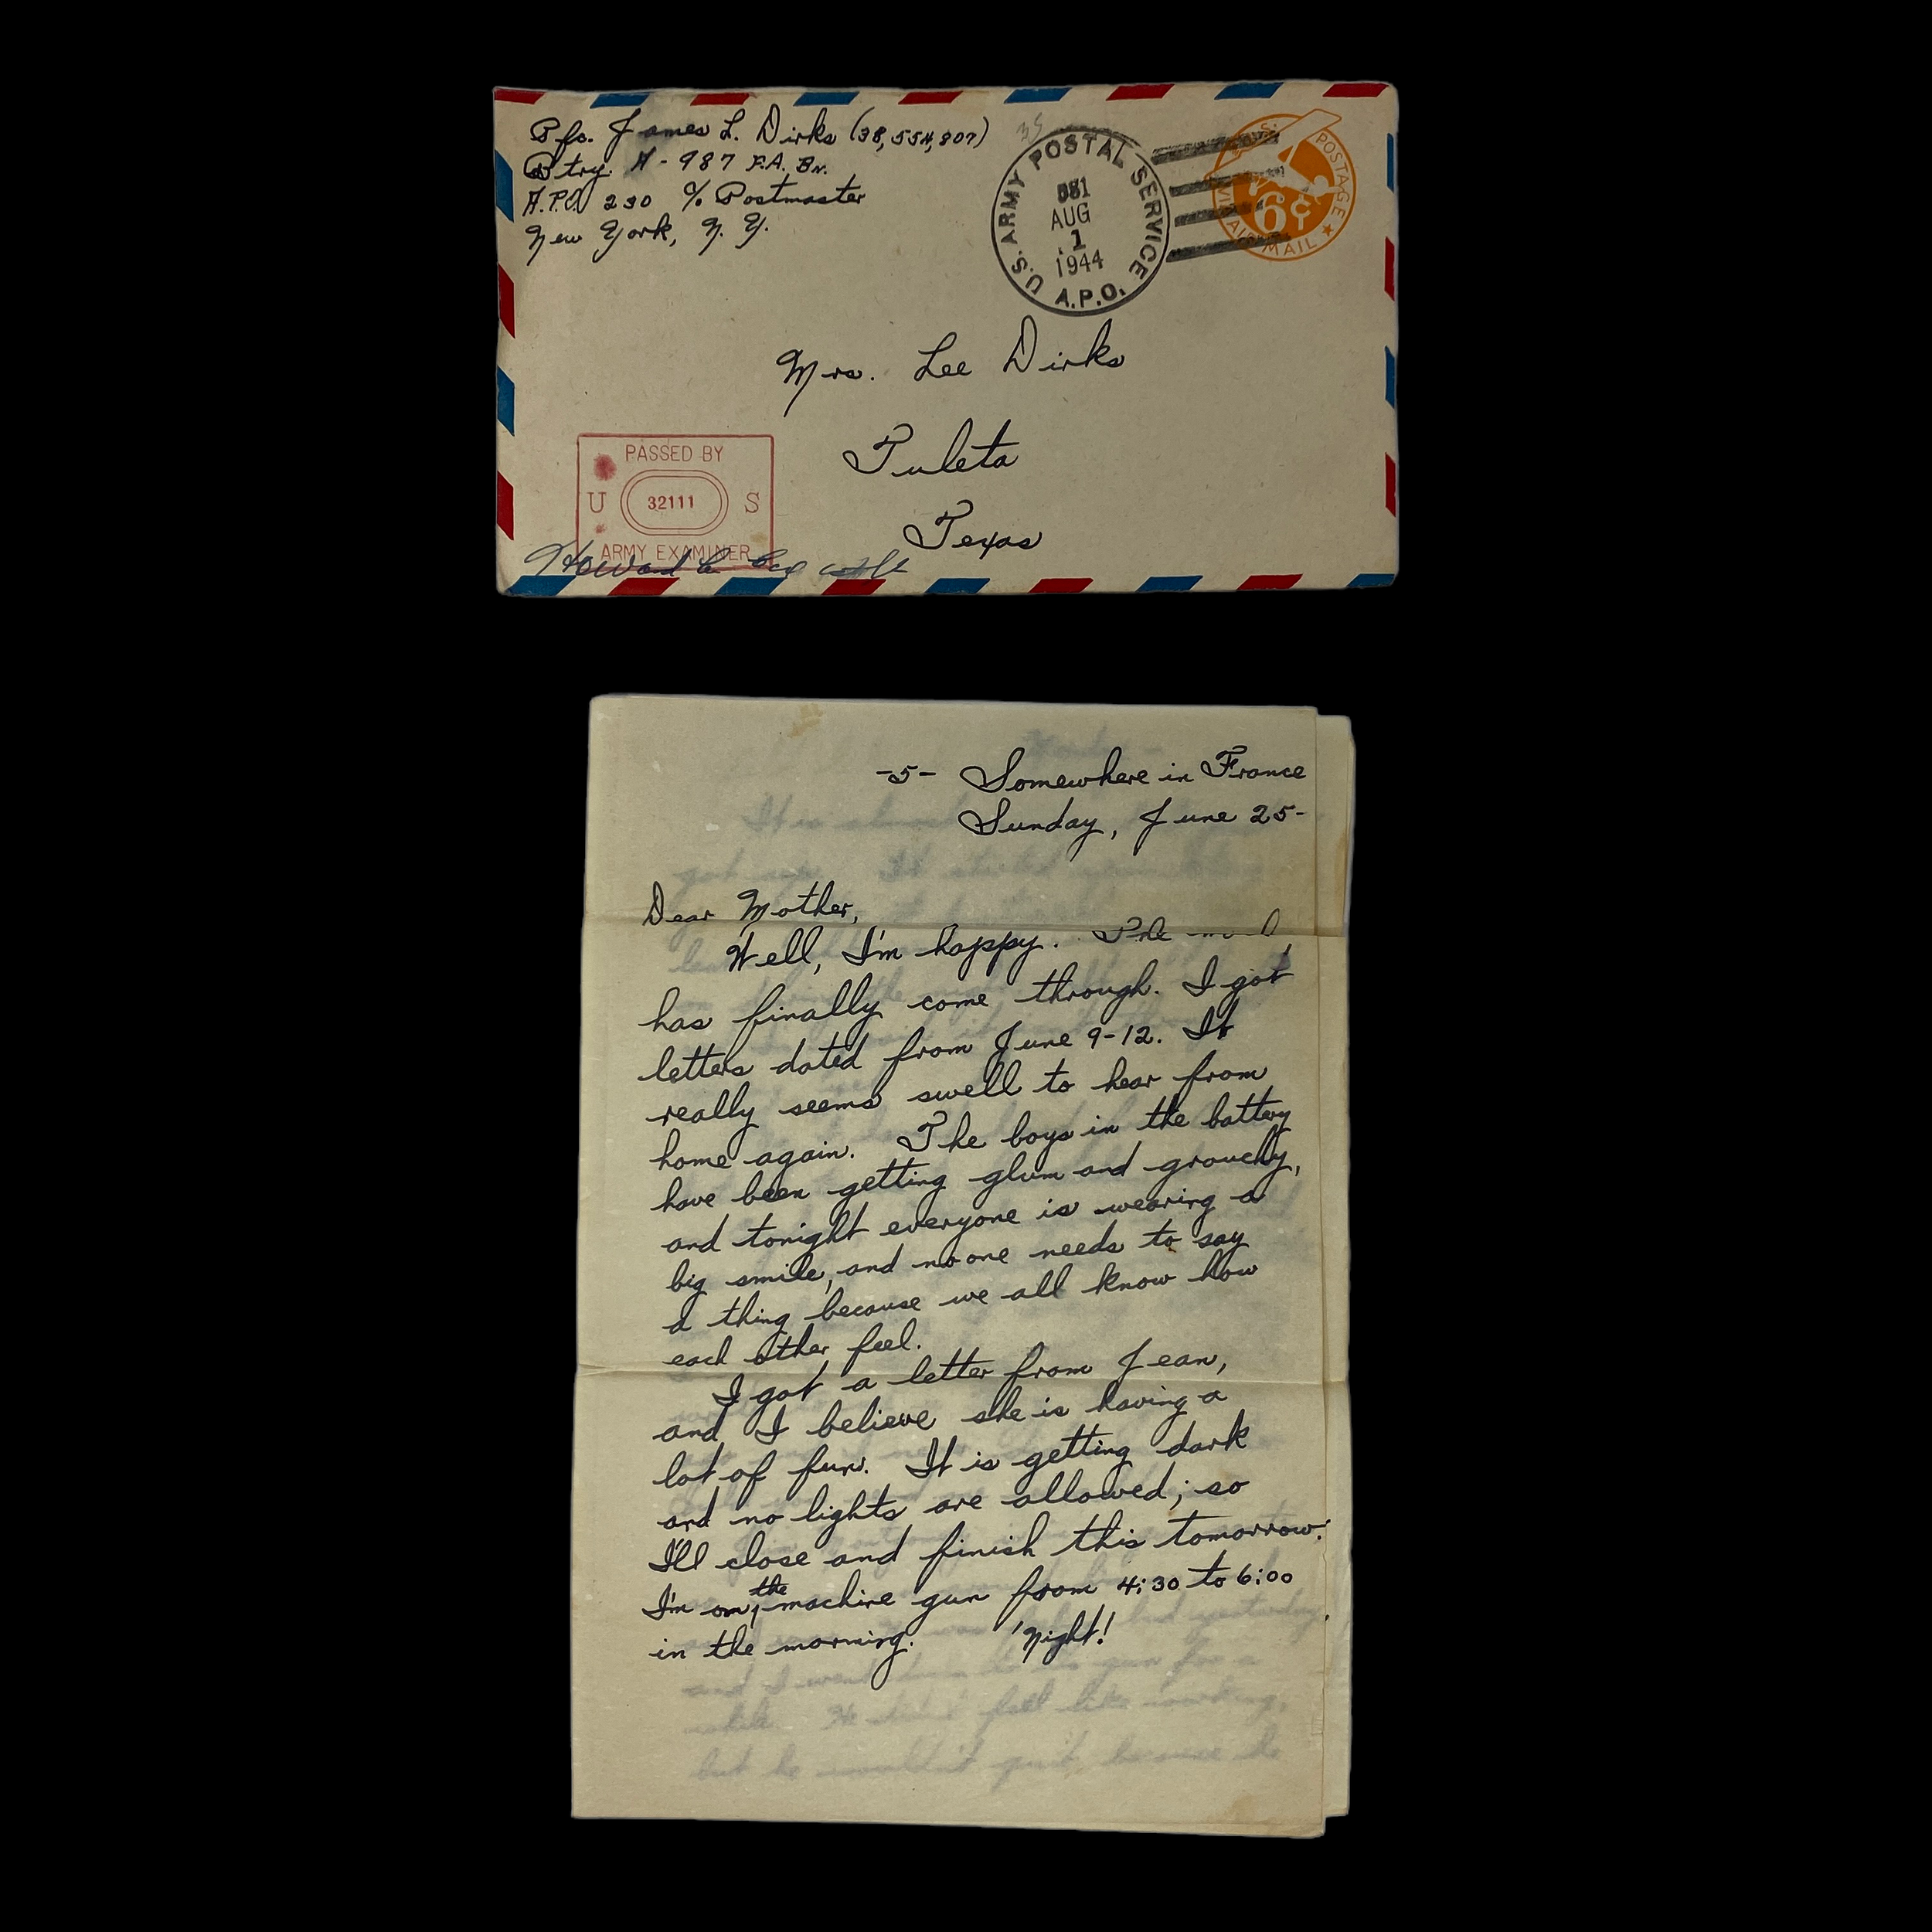 Pfc. James L. Dirks (38,554,807)
Btry. A - 987 F.A. Bn.
A.P.O. 230 % Postmaster
New York, N. Y.
U.S. ARMY POSTAL SERVICE
AUG
1
1944
A.P.O.
U.S. POSTAGE
6¢
VIA AIR MAIL
Mrs. Lee Dirks
Tuleta
Texas
PASSED BY
U 32111 S
ARMY EXAMINER
Howard
-5- Somewhere in France
Sunday, June 25-
Dear Mother,
Well, I'm happy. The mail
has finally come through. I got
letters dated from June 9-12. It
really seems swell to hear from
home again. The boys in the battery
have been getting glum and grouchy,
and tonight everyone is wearing a
big smile, and no one needs to say
a thing because we all know how
each other feel.
I got a letter from Jean,
and I believe she is having a
lot of fun. It is getting dark
and no lights are allowed; so
I'll close and finish this tomorrow.
I'm on the machine gun from 4:30 to 6:00
in the morning. 'Night!